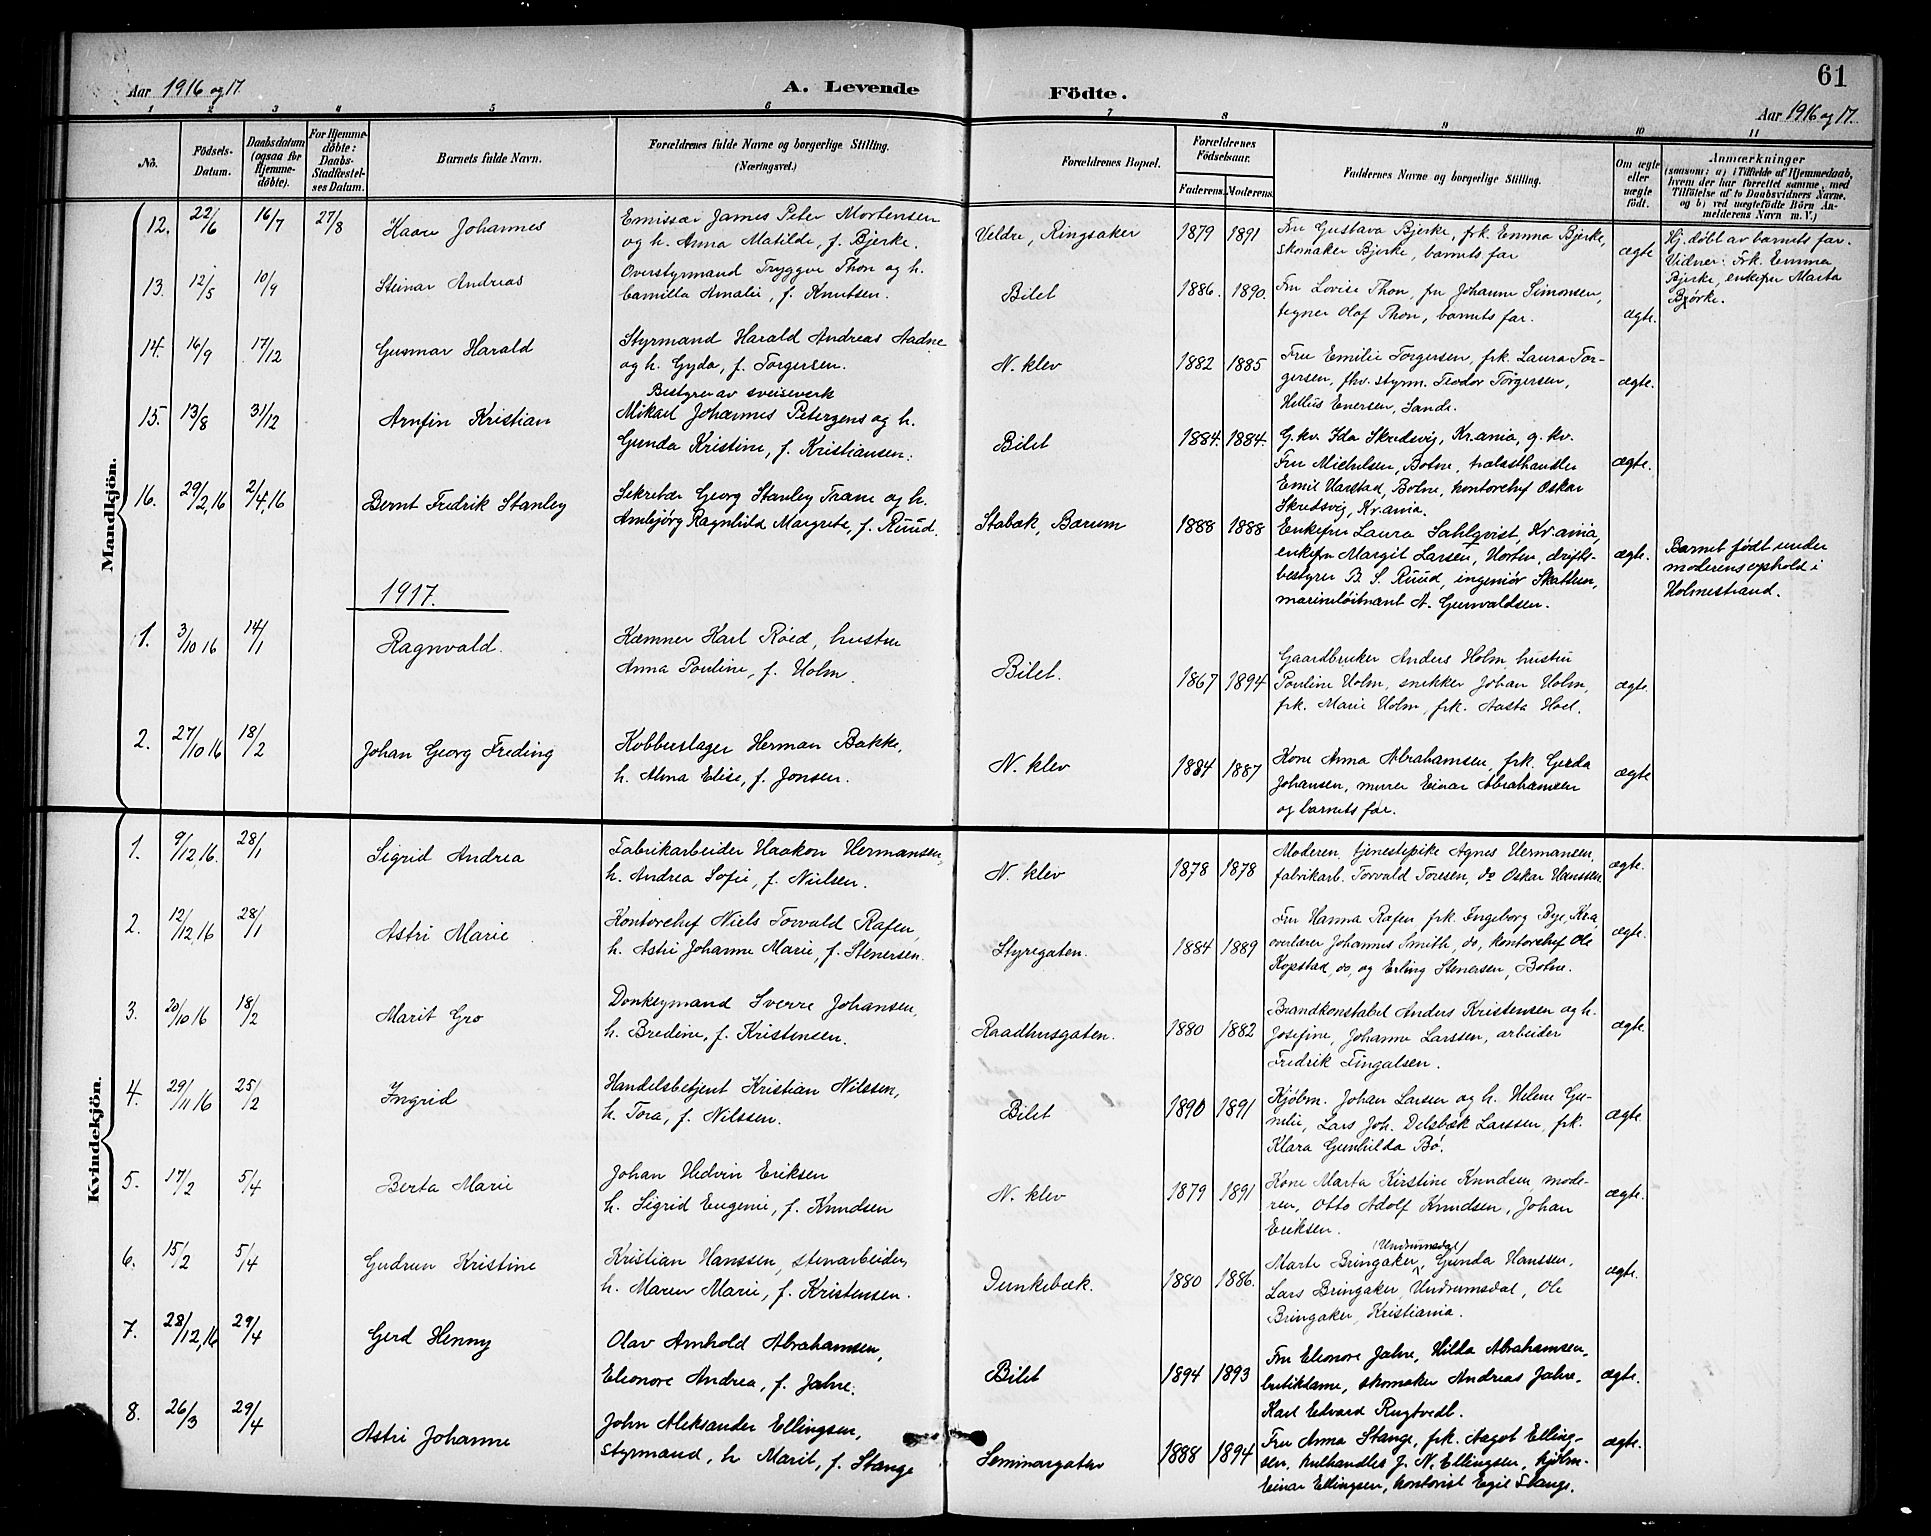 61
Aar 1916 og 17. A. Levende Födte. Aar 1916 og 17.
1 2 3 4 5 6 7 8 9 10 11
No. Födsels-Datum. Daabsdatum (ogsaa for Hjemme-döbte). For Hjemme-döbte: Daabs-Stadfæstel-ses Datum. Barnets fulde Navn. Forældrenes fulde Navne og borgerlige Stilling. (Næringsvei.) Forældrenes Bopæl. Forældrenes Födselsaar. Faderens. Moderens. Faddernes Navne og borgerlige Stilling. Om ægte eller uægte födt. Anmærkninger
(saasom: a) i Tilfælde af Hjemmedaab, hvem der har forrettet samme, med Tilföielse af to Daabsvidners Navne. og b) ved uægtefödte Börn An-melderens Navn m. V.)
Mandkjön.
12. 22/6 16/7 27/8 Haare Johannes Emissær James Peter Mortensen
og h. Anna Matilde, f. Bjerke. Veldre, Ringsaker 1879 1891 Fru Gustava Bjerke, frk. Emma Bjerke,
skomaker Bjerke, barnets far ægte Hj. döbt av barnets far.
Vidner: Frk. Emma
Bjerke, enkefru Marta
Bjørke.
13. 12/5 10/9 Steinar Andreas Overstyrmand Tryggve Thon og h.
Camilla Amalie, f. Knutsen. Bilet 1886. 1890. Fru Lovise Thon, fru Johanne Simonsen,
tegner Olof Thon, barnets far. ægte.
14. 16/9 17/12 Gunnar Harald Styrmand Harald Andreas Aadne
og h. Gyda, f. Torgersen. N. klev 1882 1885 Fru Emilie Torgersen, frk. Laura Tor-
gersen, fhv. styrm. Teodor Torgersen,
Hellus Enersen, Sande. ægte.
15. 13/8 31/12 Arnfin Kristian Bestyrer av sveiseverk
Mikael Johannes Petergens og h.
Gunda Kristine, f. Kristiansen. Bilet 1884. 1884. G.kv. Ida Skredsvig, Kr.ania, g. kv.
Fru Michelsen, Botne, trælasthandler
Emil Harstad, Botne, kontorchef Oskar
Skredsvig, Kr.ania. ægte.
16. 29/2,16 2/4,16 Bernt Fredrik Stanley Sekretær Georg Stanley Trane og h.
Ambjørg Ragnhild Margrete, f. Ruud. Stabæk, Bærum 1888 1888 Enkefru Laura Sahlqvist, Kr.ania,
enkefru Margit Larsen, Horten, drifts-
bestyrer B. S. Ruud, ingeniör Skattum,
marineløitnant A. Gunvaldsen. ægte. Barnet födt under
moderens ophold i
Holmestrand.
1917.
1. 3/10 16 14/1 Ragnvald. Kæmner Karl Röed, hustru
Anna Pouline, f. Holm Bilet. 1867 1894 Gaardbruker Anders Holm, hustru
Pouline Holm, snekker Johan Holm,
frk. Marie Holm, frk. Aasta Hoel. ægte.
2. 27/10 16 18/2 Johan Georg Freding Kobberslager Herman Bakke,
h. Alma Elise, f. Jonsen. N. klev 1884 1887 Kone Anna Abrahamsen, frk. Gerda
Johansen, murer Einar Abrahamsen
og barnets far. ægte
Kvindekjön.
1. 9/12,16. 28/1 Sigrid Andrea Fabrikarbeider Haakon Hermansen,
h. Andrea Sofie, f. Nielsen. N. klev 1878 1878 Moderen, tjenestepike Agnes Hermansen,
fabrikarb. Torvald Toresen, do Oskar Hanssen ægte.
2. 12/12,16 28/1 Astri Marie Kontorchef Niels Torvald Rafen,
h. Astri Johanne Marie, f. Stenersen. Styregaten. 1884 1889 Fru Hanna Rafen frk. Ingeborg Bye, Kra,
overlærer Johannes Smith, do, kontorchef Ole
Kopstad, do, og Erling Stenersen, Botne. ægte.
3. 20/10 16 18/2 Marit Gro Donkeymand Sverre Johansen,
h. Bredine, f. Kristensen. Raadhusgaten. 1880 1882 Brandkonstabel Anders Kristensen og h.
Josefine, Johanne Larssen, arbeider
Fredrik Fingalsen. ægte.
4. 29/11 16 25/2 Ingrid Handelsbetjent Kristian Nilssen,
h. Tora, f. Nilssen. Bilet 1890 1891 Kjöbm. Johan Larsen og h. Helene Gu-
nilie, Lars Joh. Delsbæk Larssen, frk.
Klara Gunhilda Bö. ægte.
5. 17/2 5/4 Berta Marie Johan Hedvin Eriksen
h. Sigrid Eugenie, f. Knudsen N. klev 1879 1891 Kone Marta Kirstine Knudsen, mode-
ren, Otto Adolf Knudsen, Johan
Eriksen. ægte.
6. 15/2 5/4 Gudrun Kristine Kristian Hanssen, stenarbeider,
h. Maren Marie, f. Kristensen. Dunkebæk. 1880 1886. Marte Bringaker (Undrumsdal), Gunda Hanssen,
Lars Bringaker, Undrumsdal, Ole
Bringaker, Kristiania. ægte.
7. 28/12,16 29/4 Gerd Henny Olav Arnhold Abrahamsen,
Eleonore Andrea, f. Jahre. Bilet 1894 1893 Fru Eleonore Jahre, Hilda Abrahamsen,
butikdame, skomaker Andreas Jahre,
Karl Edvard Rugtvedt. ægte.
8. 26/3 29/4 Astri Johanne John Aleksander Ellingsen,
styrmand, h Marit, f. Stange Seminargaten 1888 1894 Fru Anna Stange, frk. Aagot Elling-
sen, kulhandler J. N. Ellingsen, kjöbm.
Einar Ellingsen, kontorist Egil Stange. ægte.